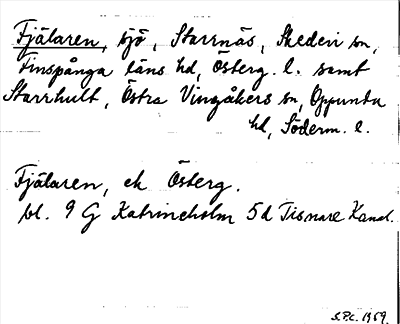 Fjälaren, sjö, Starrnäs, Skedevi sn,
Finspånga läns hd, Österg. l. samt
Starrhult, Östra Vingåkers sn, Oppunda
hd, Söderm. l.
Fjälaren, ek Österg.
bl. 9 G Katrineholm 5d Tisnare Kanal.
S.P.C. 1959.